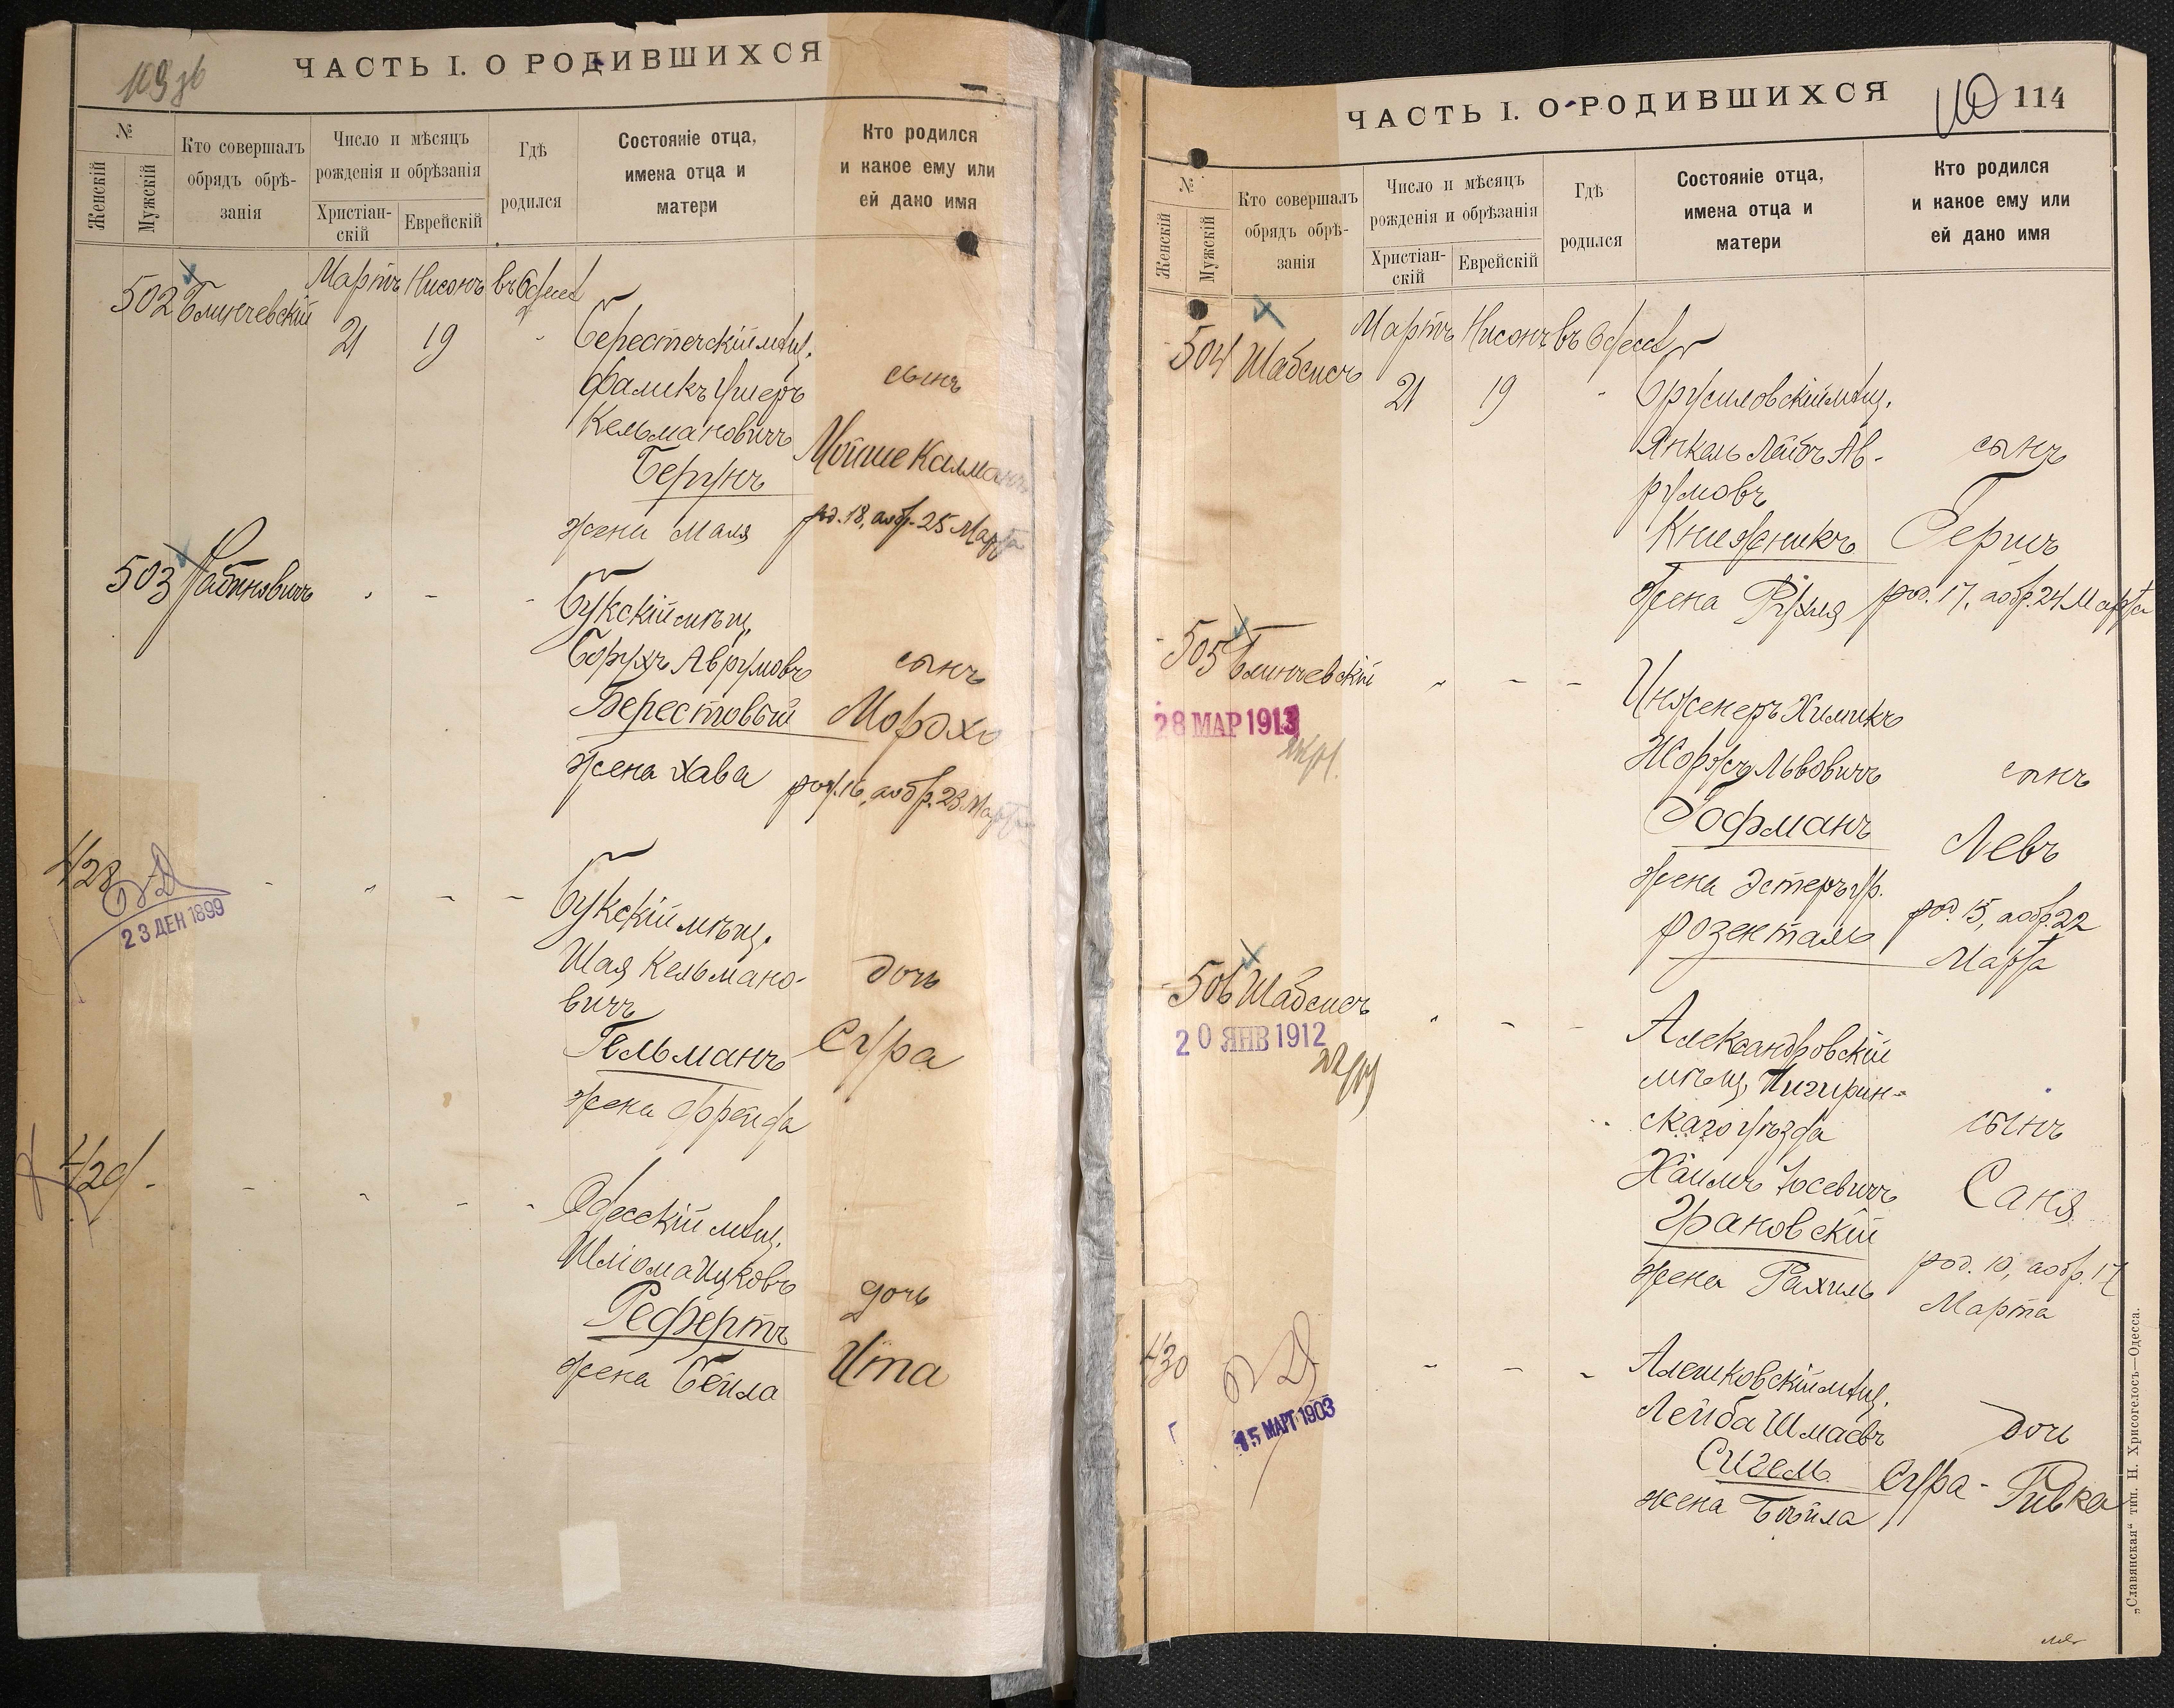 109 зв
ЧАСТЬ I. О РОДИВШИХСЯ
№
Женскій
Мужскій
Кто совершалъ
обрядъ обрѣ-
занія
Число и мѣсяцъ
рожденія и обрѣзанія
Христіан-
скій
Еврейскій
Гдѣ
родился
Состояніе отца,
имена отца и
матери
Кто родился
и какое ему или
ей дано имя
502 Блинчевскій
Мартъ Нисонъ въ Одессѣ
21 19
Берестечскій мѣщ.
Фаликъ Ушеръ
Кельмановичъ
Бегунъ
жена Маля
сынъ
Мойше Калманъ
род. 18, аобр. 25 Марта
503 Рабиновичъ
Букскій мѣщ.
Борухъ Аврумовъ
Берестовый
жена Хава
сынъ
Мордхо
род. 16, аобр. 23 Марта
428
23 ДЕК 1899
Букскій мѣщ.
Шая Кельмано-
вичъ
Гельманъ
жена Фрейда
дочь
Сура
429
Одесскій мѣщ.
Шліома Ицковъ
Рефертъ
жена Бейла
дочь
Ита
ЧАСТЬ I. О РОДИВШИХСЯ
110 114
№
Женскій
Мужскій
Кто совершалъ
обрядъ обрѣ-
занія
Число и мѣсяцъ
рожденія и обрѣзанія
Христіан-
скій
Еврейскій
Гдѣ
родился
Состояніе отца,
имена отца и
матери
Кто родился
и какое ему или
ей дано имя
504 Шабсисъ
Мартъ Нисонъ въ Одессѣ
21 19
Брусиловскій мѣщ.
Янкель Лейбъ Ав-
румовъ
Книжникъ
жена Рухля
сынъ
Гершъ
род. 17, аобр. 24 Марта
505 Блинчевскій
28 МАР 1913
Инженеръ Химикъ
Жоржъ Львовичъ
Гофманъ
жена Эстеръ ур.
Розенталь
сынъ
Левъ
род. 15, аобр. 22
Марта
506 Шабсисъ
20 ЯНВ 1912
Александровскій
мѣщ. Чигирин-
скаго уѣзда
Хаимъ Іосевичъ
Грановскій
жена Рахиль
сынъ
Саня
род. 10, аобр. 17
Марта
430
15 МАРТ 1903
Алешковскій мѣщ.
Лейба Шмаевъ
Сигель
жена Бейла
дочь
Сура - Ривка
„Славянская“ тип. Н. Хрисогелосъ—Одесса.